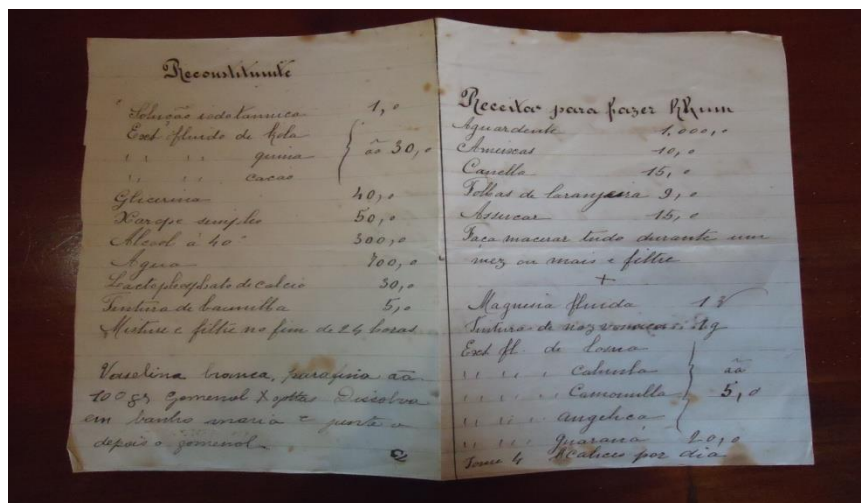 Reconstituinte
Solução iodotannica 1,0
Ext. fluido de kola
" " quina } ãa 30,0
" " cacáo
Glicerina 40,0
Xarope simples 50,0
Alcool a 40° 300,0
Agua 700,0
Lactophosphato de calcio 30,0
Tintura de baunilha 5,0
Misture e filtre no fim de 24 horas
Vaselina branca, parafina ãa
100 gr gomenol X gottas Dissolva
em banho maria e junte o
depois o gomenol
Receita para fazer RRum
Aguardente 1.000,0
Ameixas 10,0
Canella 15,0
Folhas de laranjeira 9,0
Assucar 15,0
Faça macerar tudo durante um
mez ou mais e filtre
+
Magnesia fluida 1
Tintura de noz vomica 1 g
Ext. fl. de Losna
" " " Calumba } ãa
" " " Camomilla 5,0
" " " angelica
" " " guaraná 20,0
Tome 4 calices por dia